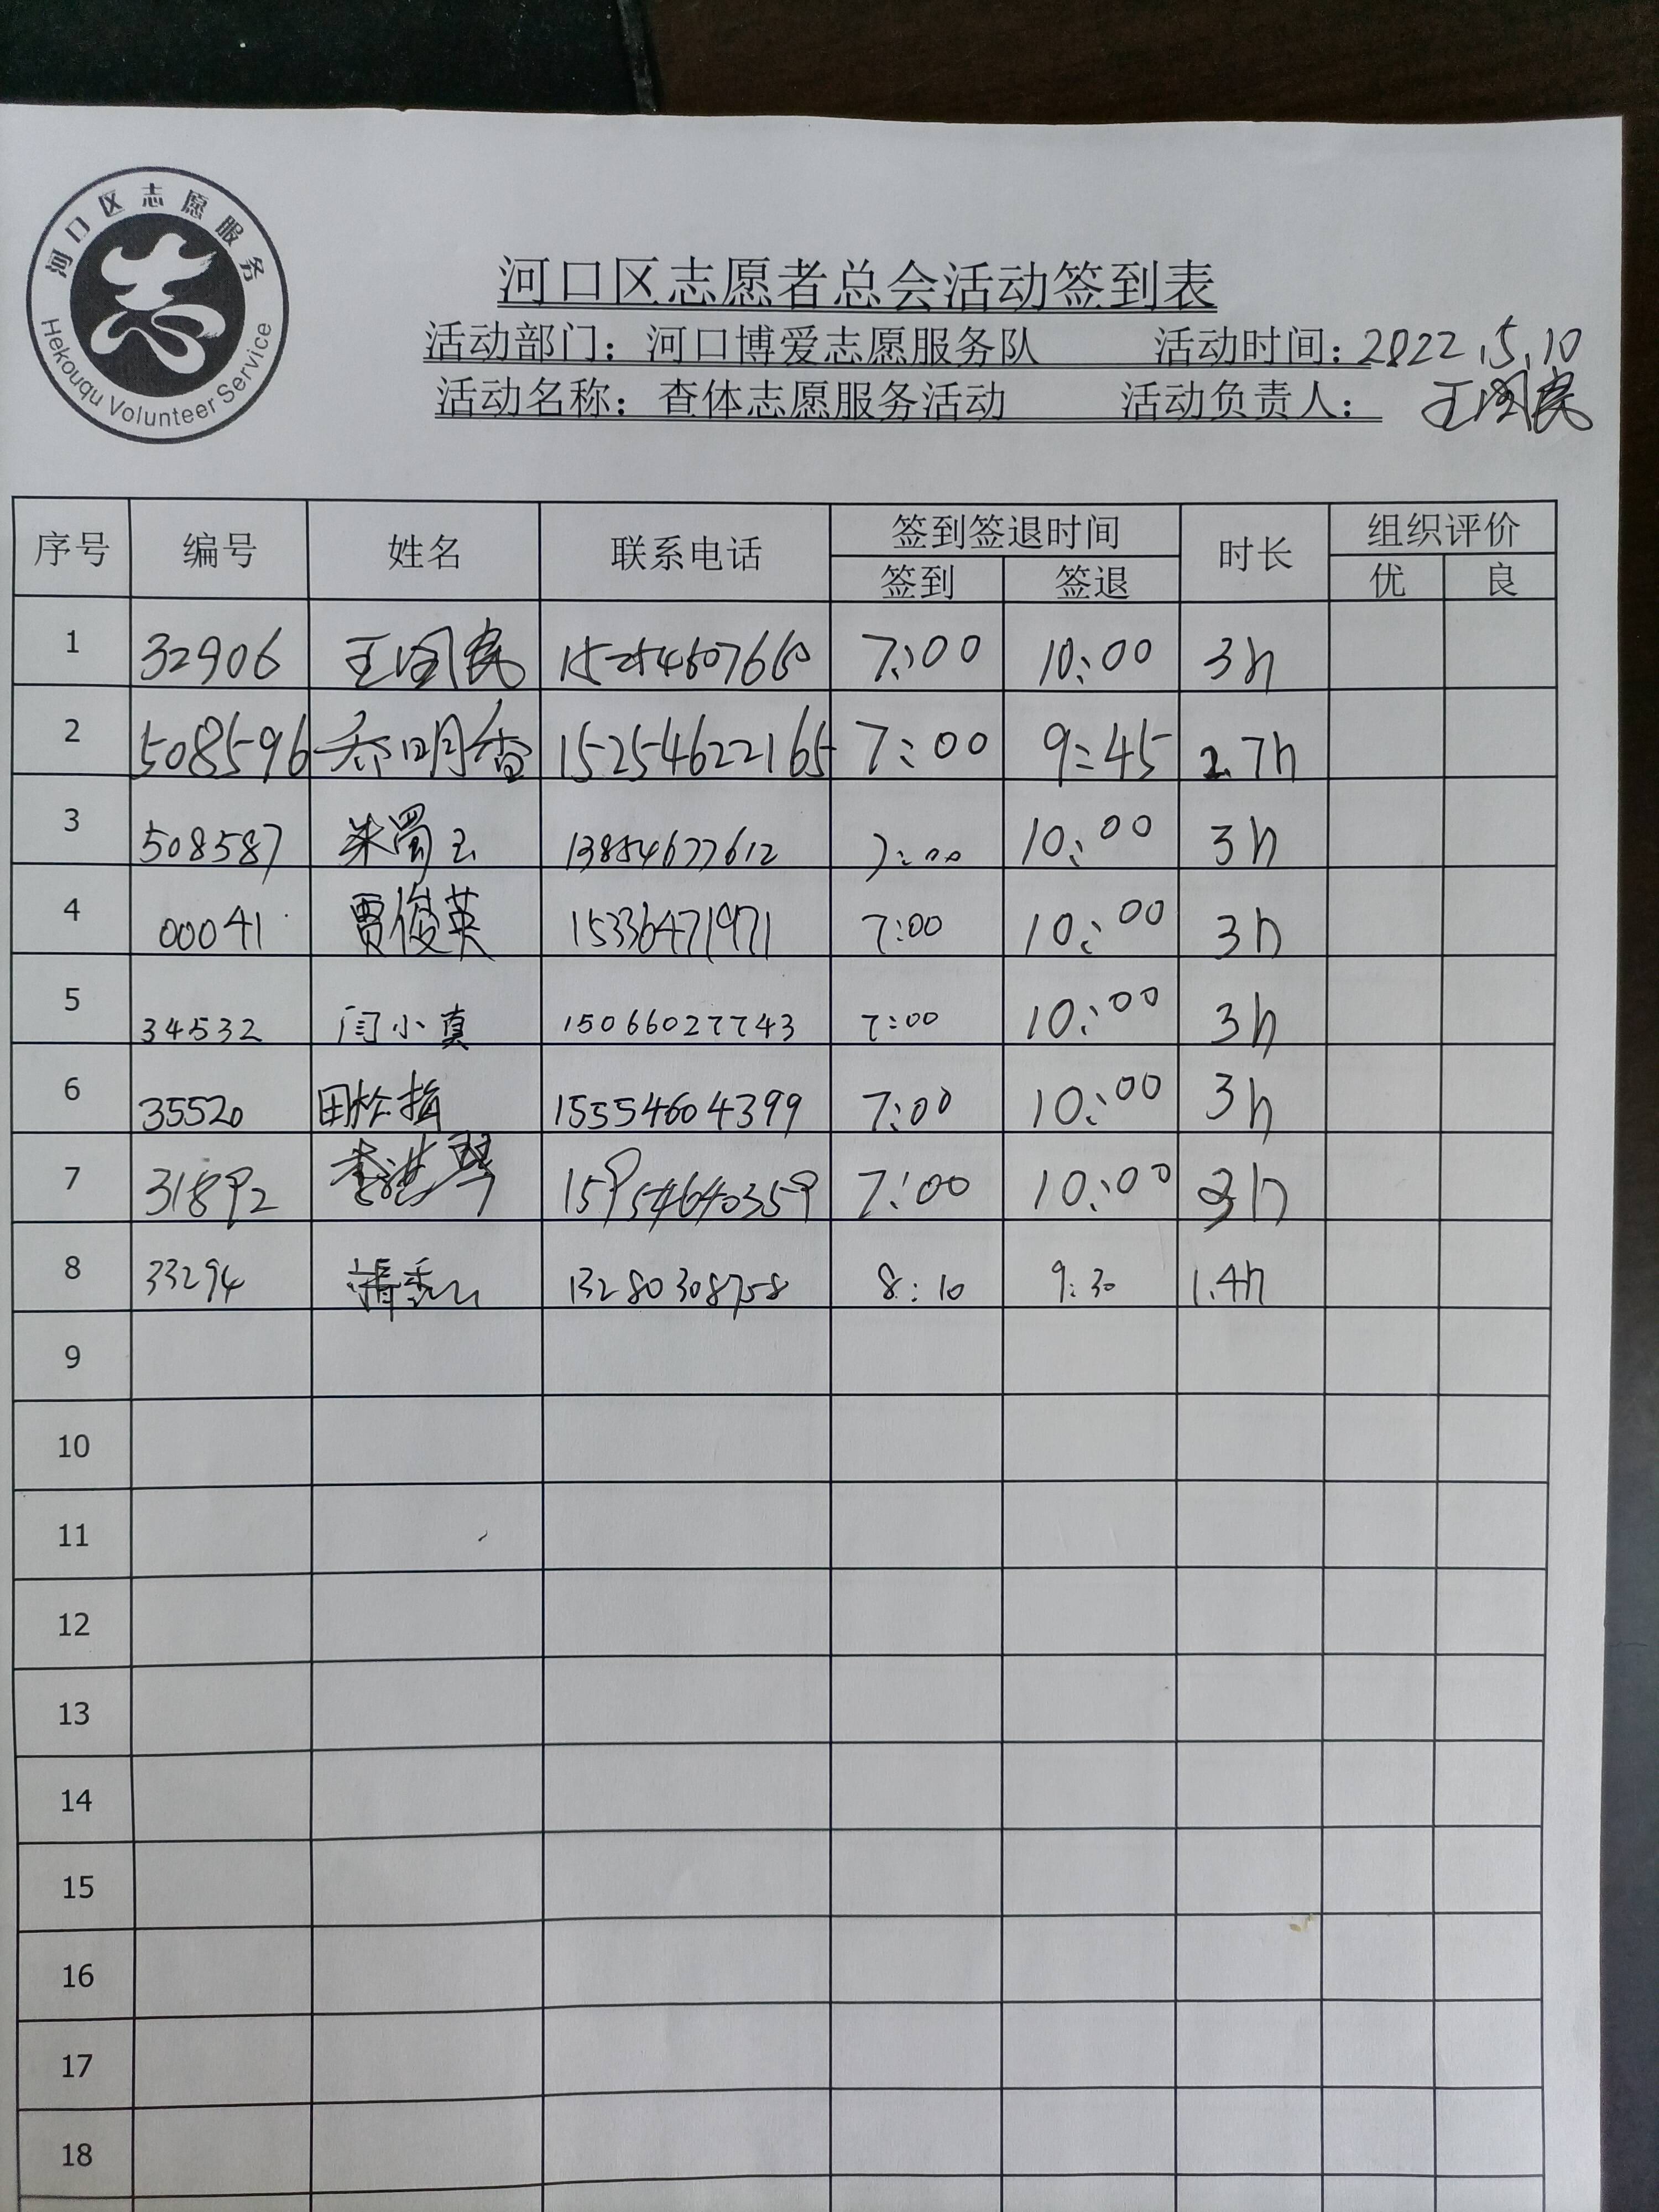 河口区志愿服务
Hekouqu Volunteer Service
河口区志愿者总会活动签到表
活动部门：河口博爱志愿服务队 活动时间：2022.5.10
活动名称：查体志愿服务活动 活动负责人：王国民
序号 编号 姓名 联系电话 签到签退时间 时长 组织评价
签到 签退 优 良
1 32906 王国民 15254607660 7:00 10:00 3h
2 508596 乔明香 15254622165 7:00 9:45 2.7h
3 508587 朱蜀玉 13854677612 7:00 10:00 3h
4 00041 贾俊英 15336471971 7:00 10:00 3h
5 34532 闫小真 15066027743 7:00 10:00 3h
6 35520 田 15554604399 7:00 10:00 3h
7 31892 李 琴 15954640359 7:00 10:00 3h
8 33294 13280308758 8:10 9:30 1.4h
9
10
11
12
13
14
15
16
17
18